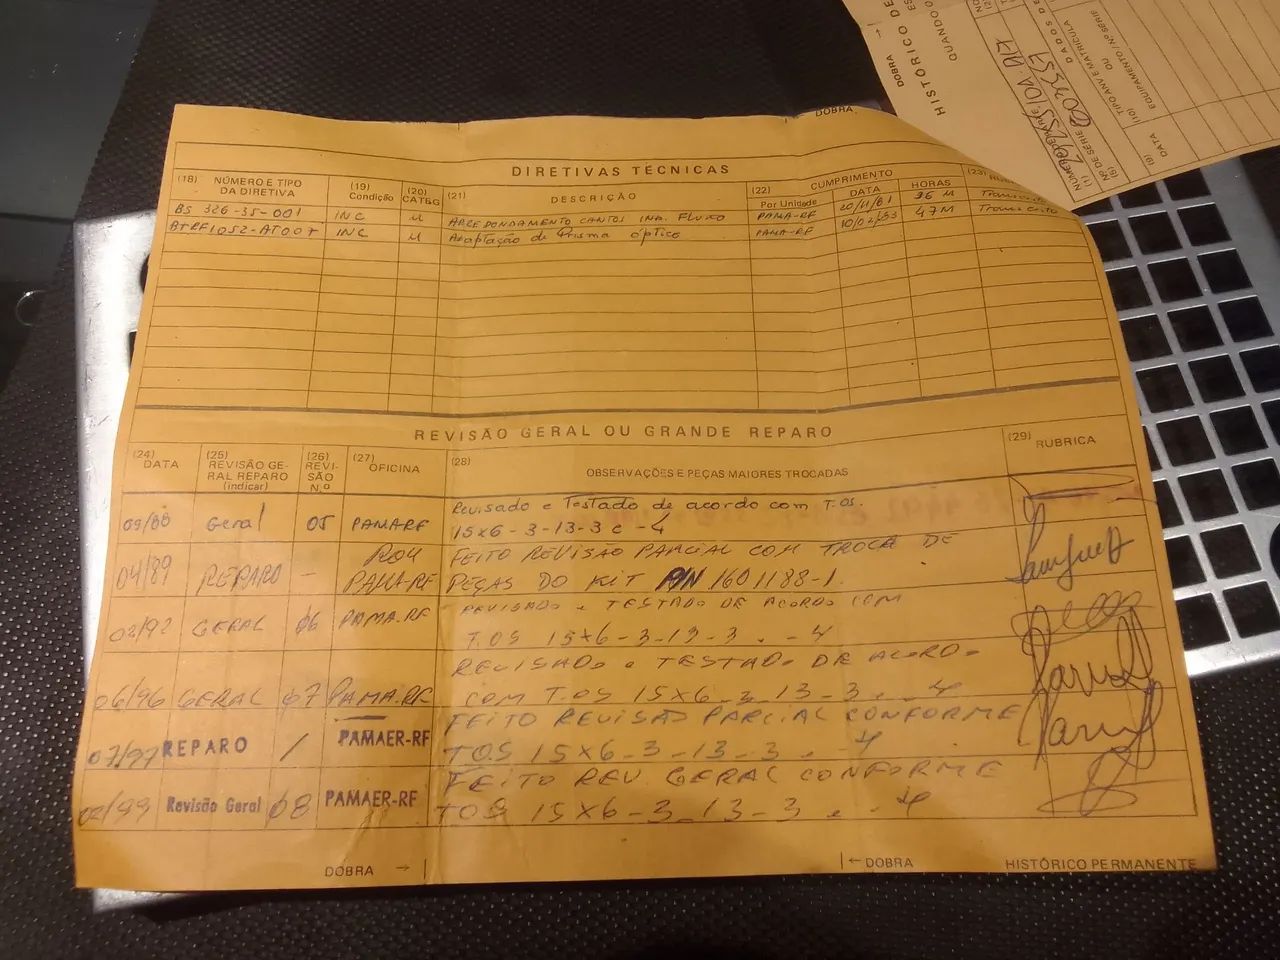 DOBRA
DIRETIVAS TÉCNICAS
(18) NÚMERO E TIPO DA DIRETIVA (19) Condição (20) CATEG (21) DESCRIÇÃO (22) CUMPRIMENTO Por Unidade DATA HORAS (23)
BS 326-35-001 INC M ARREDONDAMENTO CANTOS IND. FLUXO PAMA-RF 20/11/81 36 M
INC M Adaptação de Prisma óptico PAMA-RF 47M
REVISÃO GERAL OU GRANDE REPARO
(24) DATA (25) REVISÃO GERAL REPARO (indicar) (26) REVISÃO N.º (27) OFICINA (28) OBSERVAÇÕES E PEÇAS MAIORES TROCADAS (29) RUBRICA
Geral 05 PAMARF Revisado e Testado de acordo com T.OS.
15x6-3-13-3 e -4
04/89 REPARO - PAMA-RF FEITO REVISÃO PARCIAL COM TROCA DE
PEÇAS DO KIT P/N 1601188-1.
02/92 GERAL 06 PAMA.RF REVISADO e TESTADO DE ACORDO COM
T.OS 15x6-3-13-3 e -4
06/96 GERAL 07 PAMA.RF REVISADO e TESTADO DE ACORDO
COM T.OS 15x6-3-13-3 e -4
07/97 REPARO / PAMAER-RF FEITO REVISÃO PARCIAL CONFORME
TOS 15x6-3-13-3 e -4
Revisão Geral 08 PAMAER-RF FEITO REV. GERAL CONFORME
TOS 15x6-3-13-3 e -4
DOBRA → ← DOBRA HISTÓRICO PERMANENTE
DOBRA →
HISTÓRICO DE
QUANDO O
(5) Nº DE SÉRIE
DADOS DE
(9) DATA
(10) TIPO ANV E MATRÍCULA
OU
EQUIPAMENTO / Nº SÉRIE